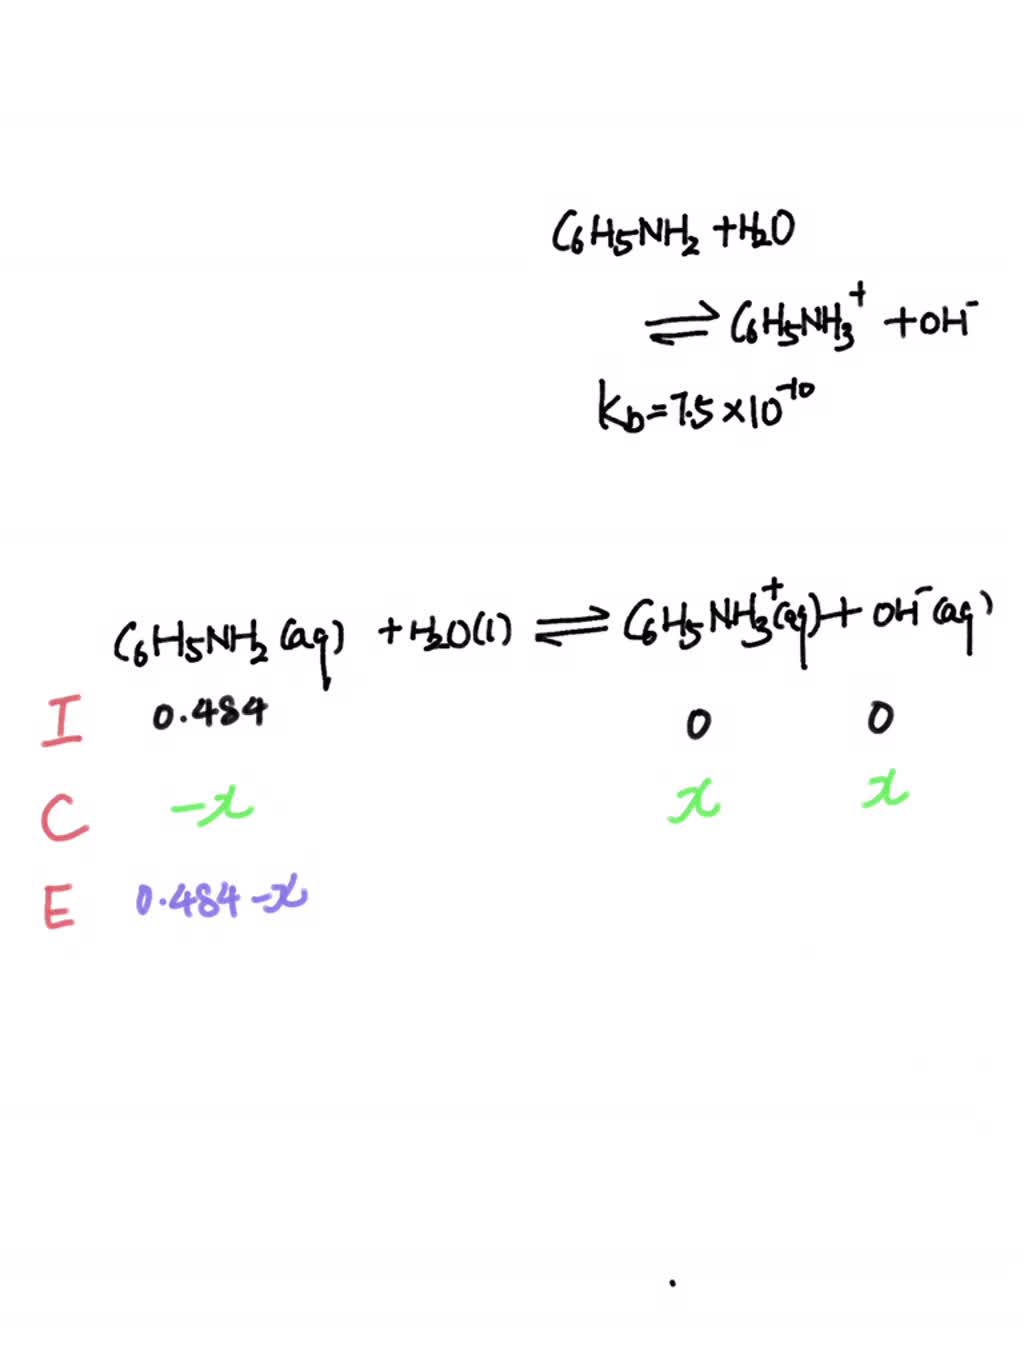 C₆H₅NH₂ + H₂O
⇌ C₆H₅NH₃⁺ + OH⁻
Kb = 7.5 × 10⁻¹⁰
C₆H₅NH₂ (aq) + H₂O(l) ⇌ C₆H₅NH₃⁺(aq) + OH⁻(aq)
I 0.484 0 0
C -x x x
E 0.484 -x